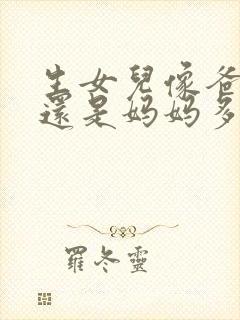 生女兒像爸
還是妈妈多
羅冬靈